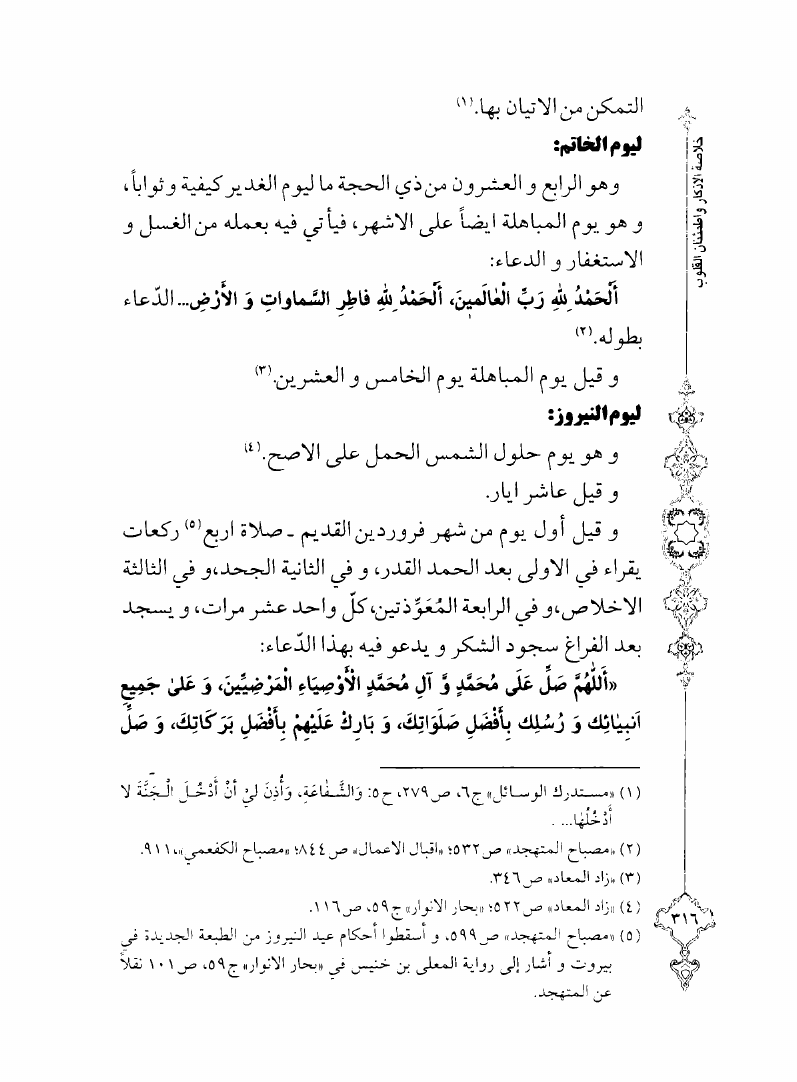 خلاصة الاذكار و اطمئنان القلوب
التمكن من الاتيان بها.(١)
ليوم الخاتم:
وهو الرابع و العشرون من ذي الحجة ما ليوم الغدير كيفية و ثواباً،
و هو يوم المباهلة ايضاً على الاشهر، فيأتي فيه بعمله من الغسل و
الاستغفار و الدعاء:
أَلْحَمْدُ لِلّٰهِ رَبِّ الْعٰالَمينَ، أَلْحَمْدُ لِلّٰهِ فاطِرِ السَّماواتِ وَ الأَرْضِ... الدّعاء
بطوله.(٢)
و قيل يوم المباهلة يوم الخامس و العشرين.(٣)
ليوم النيروز:
و هو يوم حلول الشمس الحمل على الاصح.(٤)
و قيل عاشر ايار.
و قيل أول يوم من شهر فروردين القديم - صلاة اربع(٥) ركعات
يقراء في الاولى بعد الحمد القدر، و في الثانية الجحد، و في الثالثة
الاخلاص، و في الرابعة المُعَوِّذتين، كلّ واحد عشر مرات، و يسجد
بعد الفراغ سجود الشكر و يدعو فيه بهذا الدّعاء:
«أَللّٰهُمَّ صَلِّ عَلَى مُحَمَّدٍ وَّ آلِ مُحَمَّدٍ الأَوْصِيَاءِ الْمَرْضِيِّينَ، وَ عَلىٰ جَمِيعِ
اَنبِيٰائِك وَ رُسُلِك بِأَفْضَلِ صَلَوَاتِكَ، وَ بَارِكْ عَلَيْهِمْ بِأَفْضَلِ بَرَكَاتِكَ، وَ صَلِّ
(١) «مستدرك الوسائل» ج٦، ص٢٧٩، ح٥: وَالشَّفاعَةِ، وَأُذِنَ لِيْ أَنْ أَدْخُلَ الْجَنَّةَ لا
أَدْخُلُهٰا... .
(٢) «مصباح المتهجد» ص٥٣٢؛ «اقبال الاعمال» ص٨٤٤؛ «مصباح الكفعمي»، ٩١١.
(٣) «زاد المعاد» ص٣٤٦.
(٤) «زاد المعاد» ص٥٢٢؛ «بحار الانوار» ج٥٩، ص١١٦.
(٥) «مصباح المتهجد» ص٥٩٩، و أسقطوا أحكام عيد النيروز من الطبعة الجديدة في
بيروت و أشار إلى رواية المعلى بن خنيس في «بحار الانوار» ج٥٩، ص١٠١ نقلاً
عن المتهجد.
٣١٦